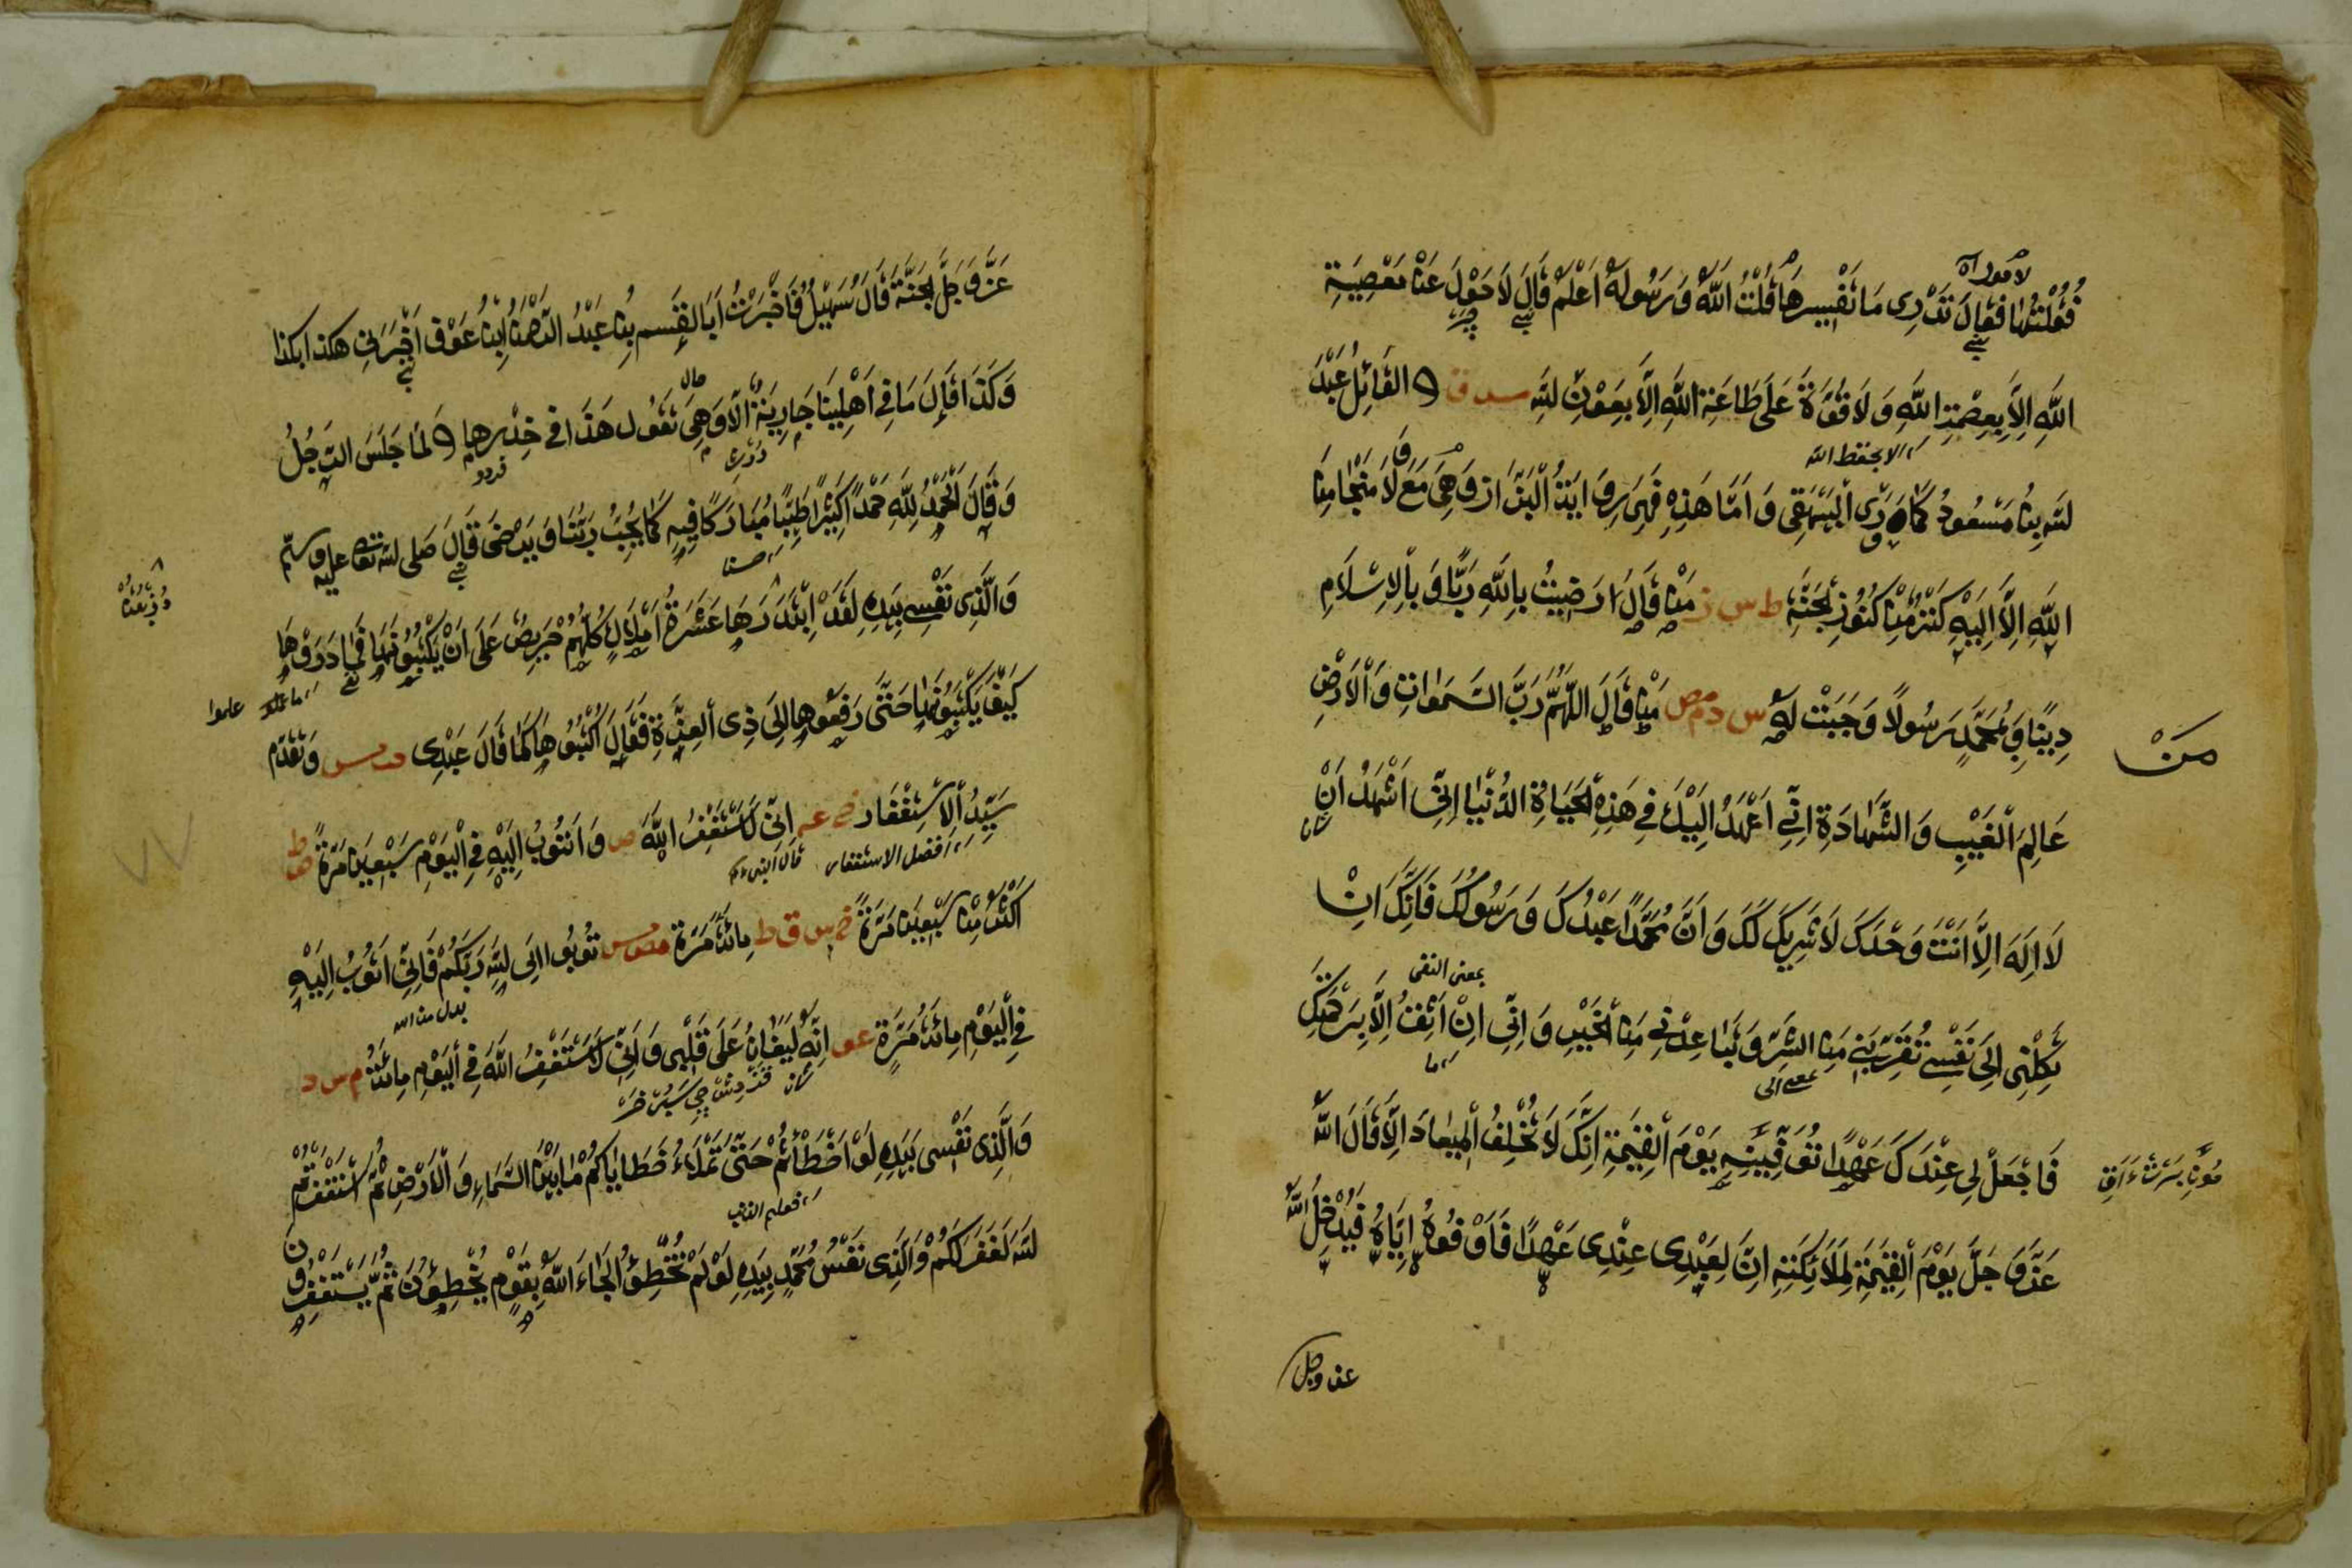 فَقُلْتُهَا فَقَالَ تَدْرِی مَا تَفْسِیرُهَا قُلْتُ اَللّٰهُ وَ رَسُولُهُ اَعْلَمُ قَالَ لَا حَوْلَ عَنْ مَعْصِیَةِ
اللّٰهِ اِلَّا بِعِصْمَةِ اللّٰهِ وَ لَا قُوَّةَ عَلَی طَاعَةِ اللّٰهِ اِلَّا بِعَوْنِ اللّٰهِ القَائِلُ عَبْدُ
اللّٰهِ بِنُ مَسْعُودٍ كَمَا رَوَی الْبَیْهَقِی وَ اَمَّا هَذِهِ فَهِیَ رِوَایَتُ الْبَزَّازِ وَ هِیَ مَعَ وَ لَا مَنْجَا مِنَ
اللّٰهِ اِلَّا اِلَیْهِ كَنْزٌ مِنْ كُنُوزِ الْجَنَّةِ ط س ز مَنْ قَالَ رَضِیتُ بِاللّٰهِ رَبًّا وَ بِالْاِسْلَامِ
دِینًا وَ بِمُحَمَّدٍ رَسُولًا وَجَبَتْ لَهُ س د م مص مَنْ قَالَ اللّٰهُمَّ رَبَّ السَّمٰوَاتِ وَ الْاَرْضِ
عَالِمَ الْغَیْبِ وَ الشَّهَادَةِ اِنِّی اَعْهَدُ اِلَیْكَ فِی هَذِهِ الْحَیَاةِ الدُّنْیَا اِنِّی اَشْهَدُ اَنْ
لَا اِلَهَ اِلَّا اَنْتَ وَحْدَكَ لَا شَرِیكَ لَكَ وَ اَنَّ مُحَمَّدًا عَبْدُكَ وَ رَسُولُكَ فَاِنَّكَ اِنْ
تَكِلْنِی اِلَی نَفْسِی تُقَرِّبْنِی مِنَ الشَّرِّ وَ تُبَاعِدْنِی مِنَ الْخَیْرِ وَ اِنِّی اِنْ اَثِقُ اِلَّا بِرَحْمَتِكَ
فَاجْعَلْ لِی عِنْدَكَ عَهْدًا تُوَفِّینِیهِ یَوْمَ الْقِیٰمَةِ اِنَّكَ لَا تُخْلِفُ الْمِیعَادَ اِلَّا قَالَ اللّٰهُ
عَزَّ وَ جَلَّ یَوْمَ الْقِیٰمَةِ لِمَلَائِكَتِهِ اِنَّ لِعَبْدِی عِنْدِی عَهْدًا فَاَوْفُوهُ اِیَّاهُ فَیُدْخِلُ اللّٰهُ
لا حول اه
الا بحفظ الله
مَنْ
بمعنی النفی
عز وجل
عَزَّ وَ جَلَّ الْجَنَّةَ قَالَ سُهَیْلٌ فَاَخْبَرْتُ اَبَا الْقٰسِمِ بْنَ عَبْدِ الرَّحْمٰنِ اِنَّ عَوْفًا اَخْبَرَنِی هكذا بكذا
وَ كَذَا قَالَ مَا فِی اَهْلِنَا جَارِیَةٌ اِلَّا وَ هِیَ تَقُولُ هَذَا فِی خِدْرِهَا لَمَّا جَلَسَ الرَّجُلُ
وَ قَالَ اَلْحَمْدُ لِلّٰهِ حَمْدًا كَثِیرًا طَیِّبًا مُبَارَكًا فِیهِ كَمَا یُحِبُّ رَبُّنَا وَ یَرْضَی قَالَ صلی الله تعالی علیه وسلم
وَ الَّذِی نَفْسِی بِیَدِهِ لَقَدْ اِبْتَدَرَهَا عَشَرَةُ اَمْلَاكٍ كُلُّهُمْ حَرِیصٌ عَلَی اَنْ یَكْتُبُوهَا فَمَا دَرَوْا
كَیْفَ یَكْتُبُونَهَا حَتَّی رَفَعُوهَا اِلَی ذِی الْعِزَّةِ فَقَالَ اُكْتُبُوهَا كَمَا قَالَ عَبْدِی وَ تَقَدَّمَ
سَیِّدُ الْاِسْتِغْفَارِ اِنِّی لَاَسْتَغْفِرُ اللّٰهَ ص وَ اَتُوبُ اِلَیْهِ فِی الْیَوْمِ سَبْعِینَ مَرَّةً
اَكْثَرَ مِنْ سَبْعِینَ مَرَّةً خ س ق ط مِائَةَ مَرَّةٍ تُوبُوا اِلَی اللّٰهِ رَبِّكُمْ فَاِنِّی اَتُوبُ اِلَیْهِ
فِی الْیَوْمِ مِائَةَ مَرَّةٍ عو اِنَّهُ لَیُغَانُ عَلَی قَلْبِی وَ اِنِّی لَاَسْتَغْفِرُ اللّٰهَ فِی الْیَوْمِ مِائَةً م س د
وَ الَّذِی نَفْسِی بِیَدِهِ لَوْ اَخْطَأْتُمْ حَتَّی تَمْلَاءَ خَطَایَاكُمْ مَا بَیْنَ السَّمَاءِ وَ الْاَرْضِ ثُمَّ اسْتَغْفَرْتُمُ
اللّٰهَ لَغَفَرَ لَكُمْ وَ الَّذِی نَفْسُ مُحَمَّدٍ بِیَدِهِ لَوْ لَمْ تُخْطِئُوا لَجَاءَ اللّٰهُ بِقَوْمٍ یُخْطِئُونَ ثُمَّ یَسْتَغْفِرُونَ
حسنا
علموا
افضل الاستغفار
بدل من الله